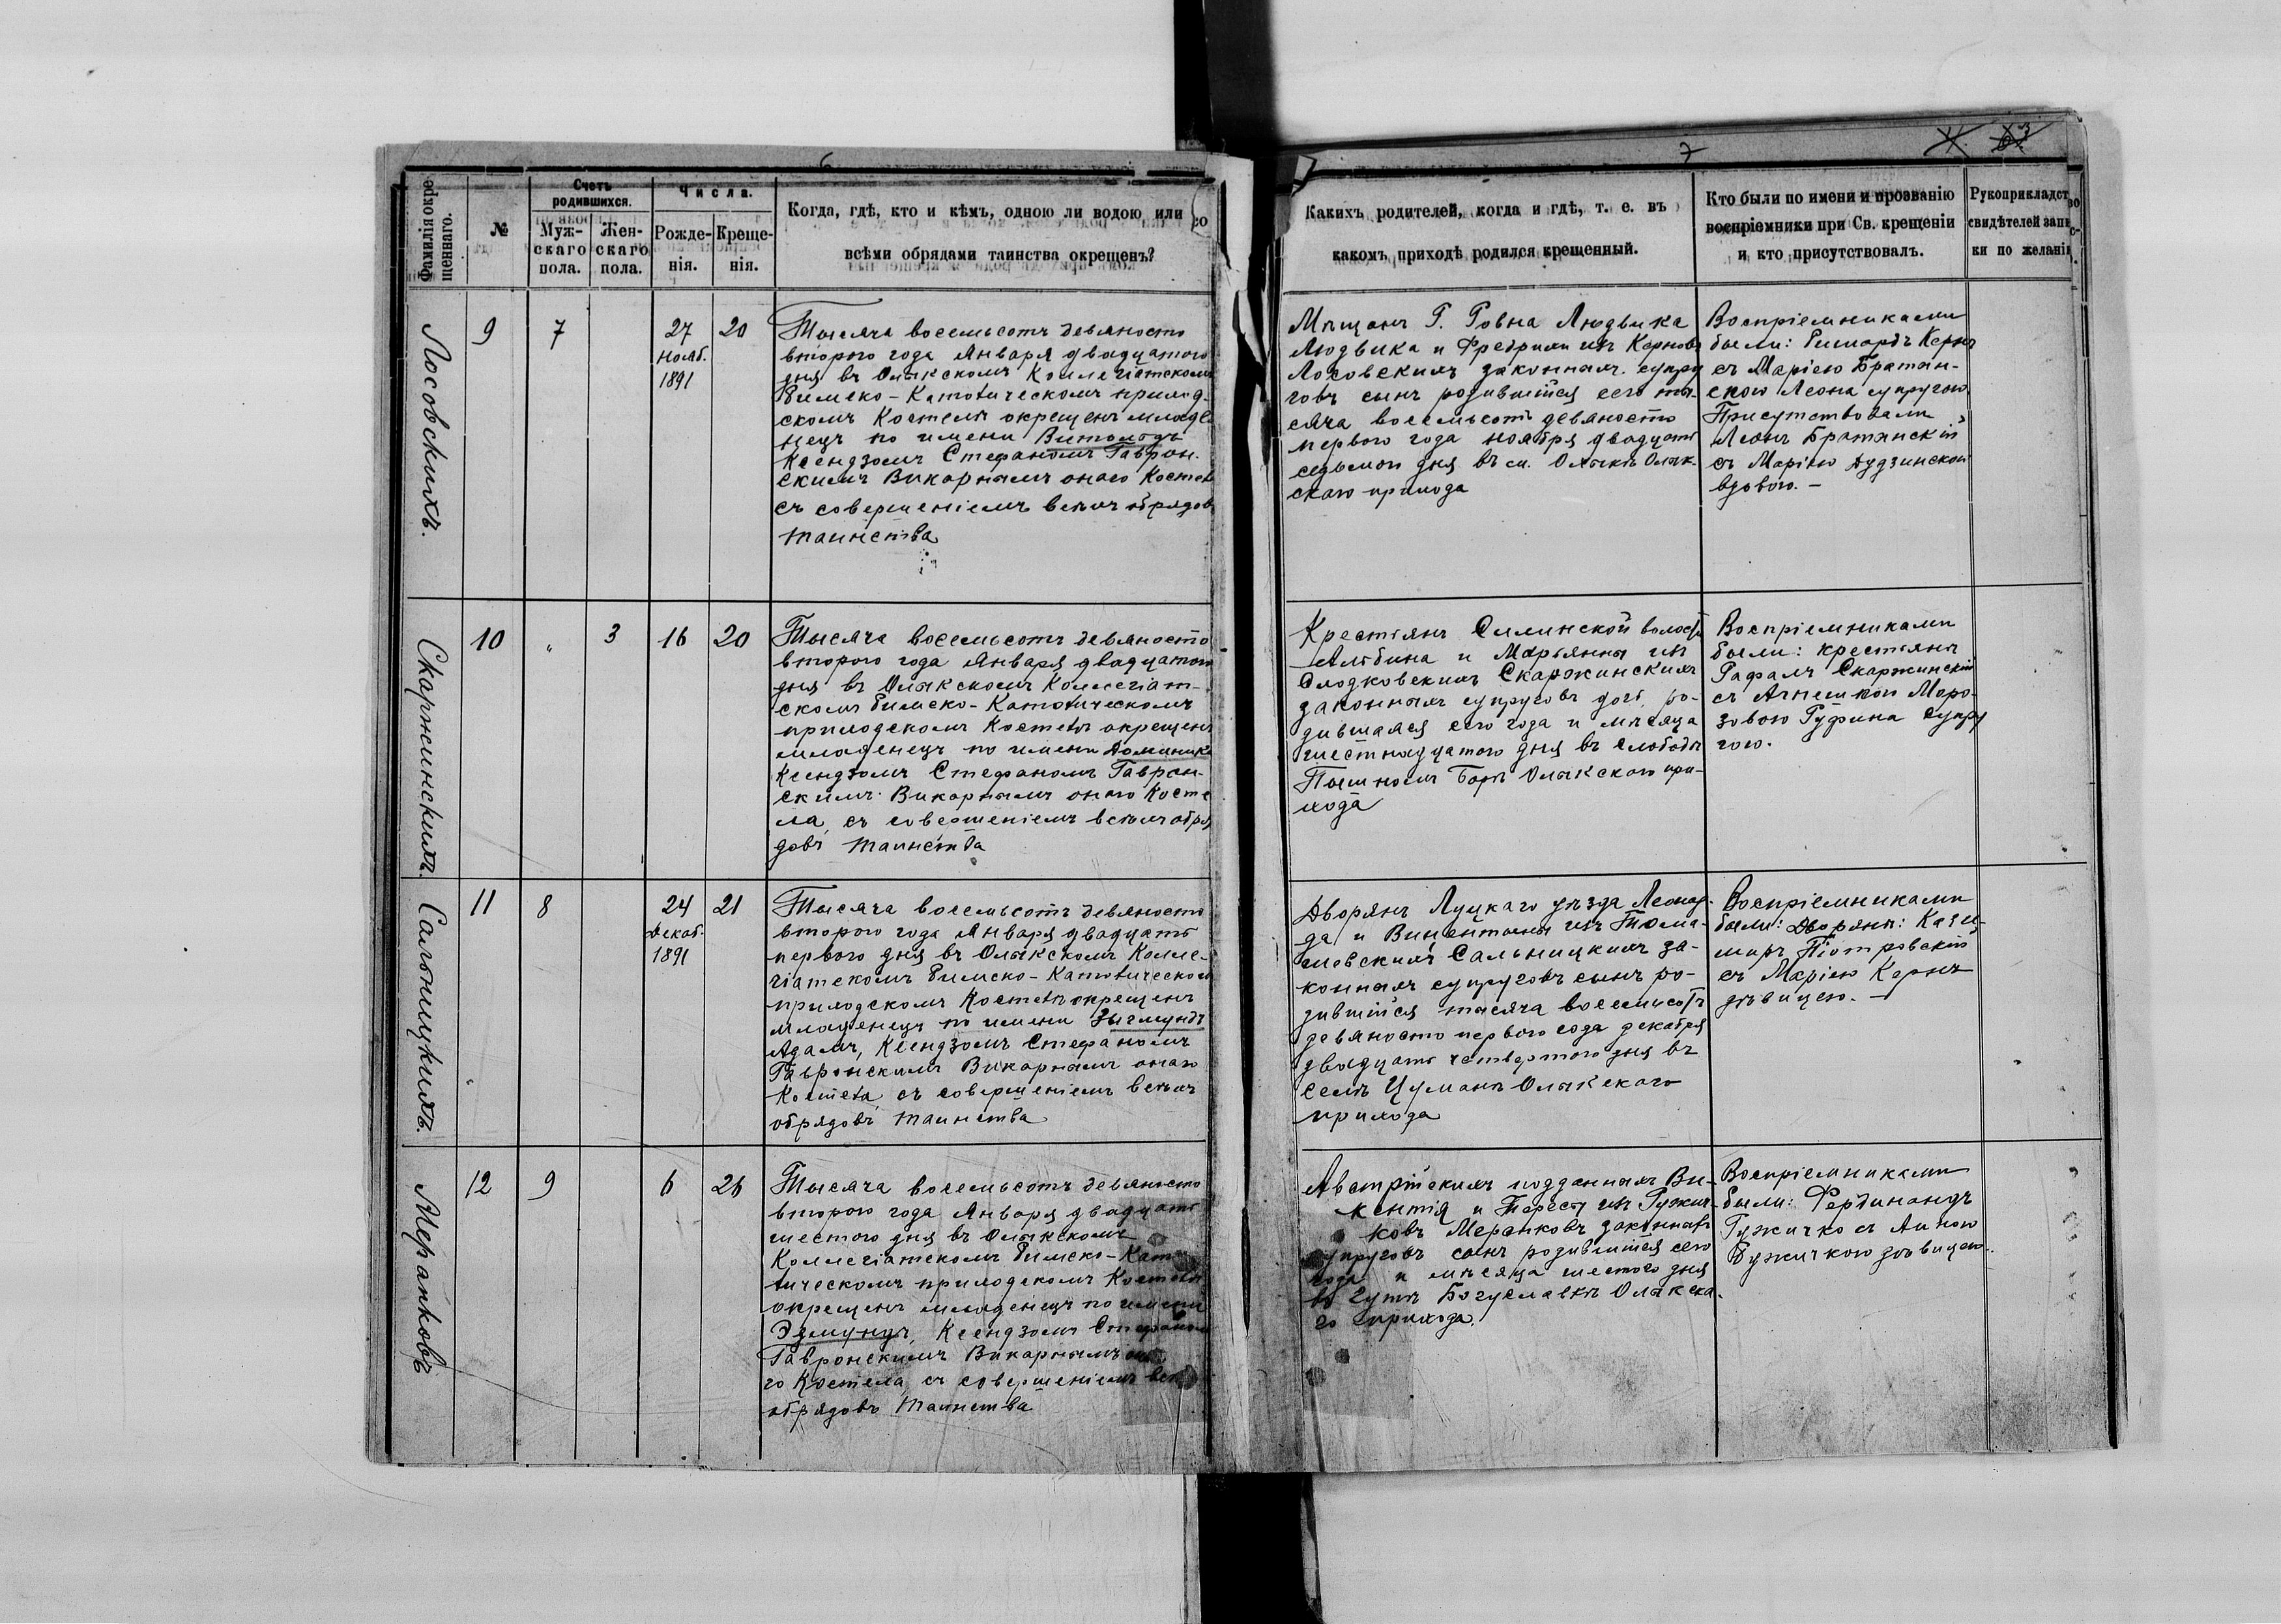 6
Фамилія окре-
щеннаго.
№
Счетъ
родившихся.
Муж-
скаго
пола.
Жен-
скаго
пола.
Числа.
Рожде-
нія.
Креще-
нія.
Когда, гдѣ, кто и кѣмъ, одною ли водою или со
всѣми обрядами таинства окрещенъ?
Лосовскихъ.
9
7
27
нояб.
1891
20
Тысяча восемьсотъ девяносто
второго года Января двадцатого
дня въ Олыкскомъ Коллегіатскомъ
Римско-Католическомъ приход-
скомъ Костелѣ окрещенъ младе-
нецъ по имени Витольдъ
Ксендзомъ Стефаномъ Гаврон-
скимъ Викарнымъ онаго Костела
съ совершеніемъ всѣхъ обрядовъ
таинства
Скаржинскихъ.
10
"
3
16
20
Тысяча восемьсотъ девяносто
второго года Января двадцатого
дня въ Олыкскомъ Коллегіат-
скомъ Римско-Католическомъ
приходскомъ Костелѣ окрещенъ
младенецъ по имени Доминика
Ксендзомъ Стефаномъ Гаврон-
скимъ Викарнымъ онаго Косте
ла, съ совершеніемъ всѣхъ обря
довъ таинства
Сальницкихъ.
11
8
24
декаб.
1891
21
Тысяча восемьсотъ девяносто
второго года Января двадцать
первого дня въ Олыкскомъ Колле-
гіатскомъ Римско-Католическомъ
приходскомъ Костелѣ окрещенъ
младенецъ по имени Зыгмундъ
Адамъ, Ксендзомъ Стефаномъ
Гавронскимъ Викарнымъ онаго
Костела, съ совершеніемъ всѣхъ
обрядовъ таинства
Меранковъ
12
9
6
26
Тысяча восемьсотъ девяносто
второго года Января двадцать
шестого дня въ Олыкскомъ
Коллегіатскомъ Римско-Като
лическомъ приходскомъ Костелѣ
окрещенъ младенецъ по имени
Эдмундъ, Ксендзомъ Стефаномъ
Гавронскимъ Викарнымъ она
го Костела, съ совершеніемъ всѣ
обрядовъ таинства
7
Какихъ родителей, когда и гдѣ, т. е. въ
какомъ приходѣ родился крещенный.
Кто были по имени и прозванію
воспріемники при Св. крещеніи
и кто присутствовалъ.
Рукоприкладство
свидѣтелей запис-
ки по желанію.
Мѣщанъ Г. Ровна Людвика
Людвика и Фредрики изъ Керновъ
Лосовскихъ законныхъ супру
говъ сынъ родившійся сего ты-
сяча восемьсотъ девяносто
первого года ноября двадцать
седьмого дня въ м. Олыкѣ Олык-
скаго прихода
Воспріемниками
были: Ришардъ Кернъ
съ Маріею Братян-
скою Леона супругою
Присутствовали
Леонъ Братянскій
съ Маріею Дудзинскою
вдовою. –
Крестьянъ Силинской волости
Альбина и Марьянны изъ
Слодковскихъ Скаржинскихъ
законныхъ супруговъ дочь, ро-
дившаяся сего года и мѣсяца
шестнадцатого дня въ слободѣ
Пышномъ Борѣ Олыкского при-
хода
Воспріемниками
были: крестьяне
Рафалъ Скаржинскій
съ Агнешкой Моро-
зовою Руфина супру
гою.
Дворянъ Луцкаго уѣзда Леонар-
да и Винентины изъ Тома-
шевскихъ Сальницкихъ за-
конныхъ супруговъ сынъ ро-
дившійся тысяча восемьсотъ
девяносто первого года декабря
двадцать четвертого дня въ
селѣ Цуманѣ Олыкского
прихода
Воспріемниками
были: Дворяне: Кази-
миръ Піотровскій
съ Маріею Кернъ
дѣвицею. –
Австрійскихъ подданныхъ Ви-
кентія и Тересы изъ Ружич-
ковъ Меранковъ законныхъ
супруговъ сынъ родившійся сего
года и мѣсяца шестого дня
въ Гутѣ Богуславкѣ Олыкска-
го прихода.
Воспріемниками
были: Фердинандъ
Ружичко съ Анною
Ружичкою дѣвицею.